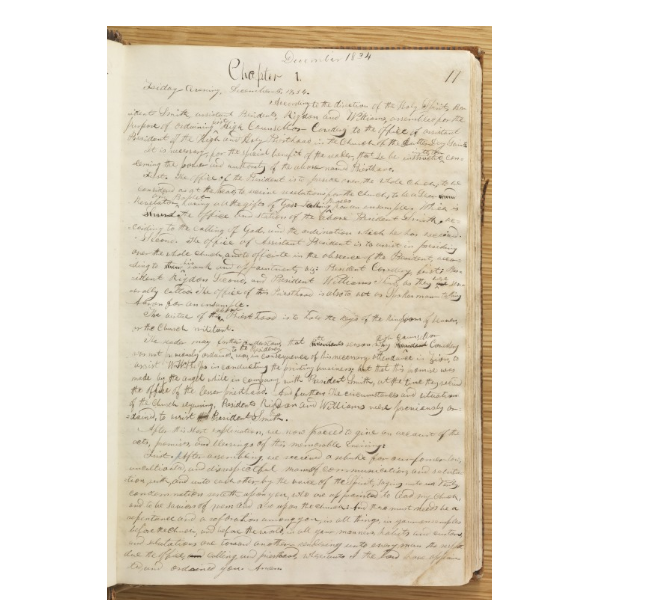 December 1834
Chapter 1. 17
Friday Evening, December 5, 1834.
According to the direction of the Holy Spirit, Pre-
sident Smith, assistant Presidents, Rigdon and Williams, assembled for the
purpose of ordaining High Counsellor Cowdery to the office of assistant
President of the High and Holy Priesthood in the Church of the Latter Day Saints
It is necessary, for the special benefit of the reader, that he be instructed con-
cerning the power and authority of the above named Priesthood.
First. The office of the President is to preside over the whole Church; to be
considered as at the head; to receive revelations for the Church; to be a Seer,
Revelator having all the gifts of God having Moses for an ensample. Which is
the office and station of the above President Smith, ac-
cording to the calling of God, and the ordination which he has received.
Second. The office of Assistant President is to assist in presiding
over the whole church, and to officiate in the absence of the President, accor-
ding to rank and appointment, viz: President Cowdery, first; Pre-
sident Rigdon Second, and President Williams Third, as they were sev-
erally called. The office of this Priesthood is also to act as Spokesman taking
Aaron for an ensample.
The virtue of the Priesthood is to hold the keys of the kingdom of heaven,
or the Church militant.
The reader may further understand, that reason why High Counsellor Cowdery
was not previously ordained was in consequence of his necessary attendance in Zion, to
assist Wm W. Phelps in conducting the printing business; but that this promise was
made by the angel while in company with President Smith, at the time they received
the office of the lesser priesthood. And further: The circumstances and situation
of the Church requiring, Presidents Rigdon and Williams were previously or-
dained, to assist President Smith.
After this short explanation, we now proceed to give an account of the
acts, promises, and blessings of this memorable Evening:
First. After assembling, we received a rebuke for our former low,
uncultivated, and disrespectful manner of communication, and saluta-
tion, with, and unto each other, by the voice of the Spirit, saying unto us: Verily,
condemnation resteth upon you, who are appointed to lead my Church,
and to be saviors of men: and also upon the church: And there must needs be a
repentance and a reformation among you, in all things, in your ensamples
before the Church, and before the world, in all your manners, habits and customs,
and salutations one toward another—rendering unto every man the respect
due the office, calling, and priesthood, whereunto I the Lord have appoin-
ted and ordained you. Amen.